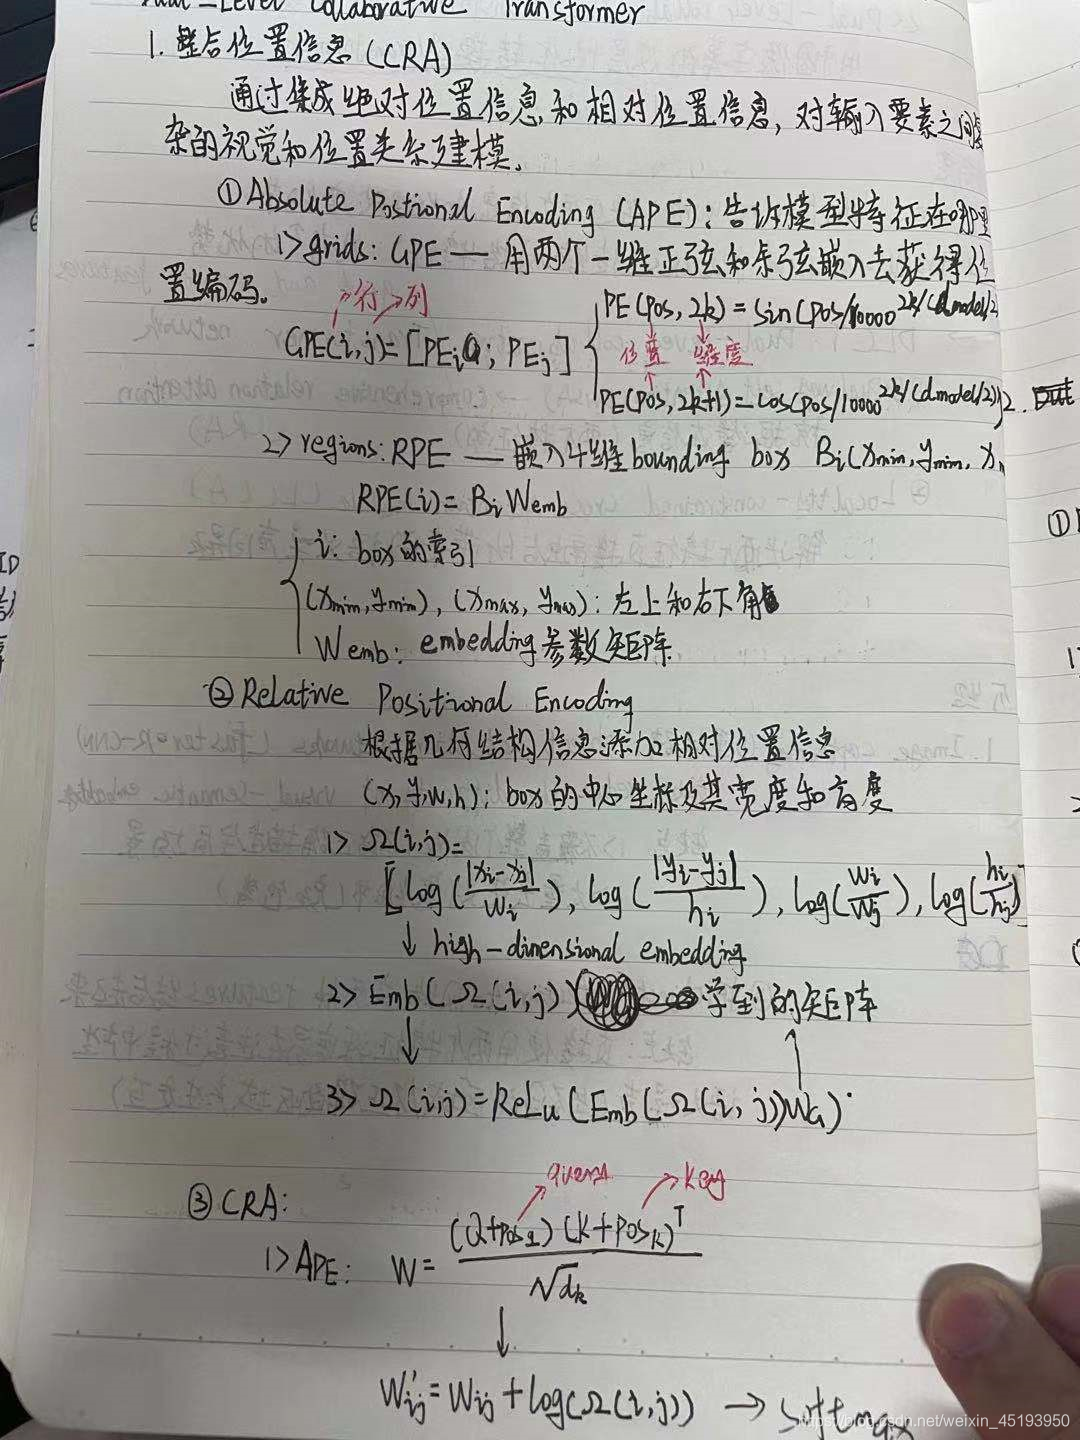 Dual-Level Collaborative Transformer
1. 整合位置信息 (CRA)
通过集成绝对位置信息和相对位置信息, 对输入要素之间复
杂的视觉和位置关系建模。
① Absolute Postional Encoding (APE): 告诉模型特征在哪里
1> grids: GPE — 用两个一维正弦和余弦嵌入去获得位
置编码。
行 列
GPE(i,j)=[PEi; PEj]
PE(pos, 2k) = sin(pos/10000^2k/(dmodel/2)
位置 维度
PE(pos, 2k+1)=cos(pos/10000^2k/(dmodel/2))
2> regions: RPE — 嵌入4维 bounding box Bi(xmin, ymin, x
RPE(i)= BiWemb
i: box的索引
(xmin, ymin), (xmax, ymax): 左上和右下角
Wemb: embedding参数矩阵
② Relative Positional Encoding
根据几何结构信息添加相对位置信息
(x, y, w, h): box的中心坐标及其宽度和高度
1> Ω(i,j)=
[log(|xi-xj|/wi), log(|yi-yj|/hi), log(wi/wj), log(hi/hj)]
↓ high-dimensional embedding
2> Emb(Ω(i,j)) 学到的矩阵
3> Ω(i,j)=ReLu(Emb(Ω(i,j))WG)
query key
③ CRA:
1> APE: W= (Q+posq)(K+posk)^T/√dk
↓
W'ij=Wij+log(Ω(i,j)) → softmax
https://blog.csdn.net/weixin_45193950